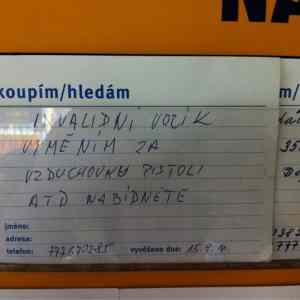 NA
koupím/hledám
INVALIDNÍ VOZÍK
VYMĚNÍM ZA
VZDUCHOVKU PISTOLI
ATD NABÍDNĚTE
jméno:
adresa:
telefon:
vyvěšeno dne: 15.9.